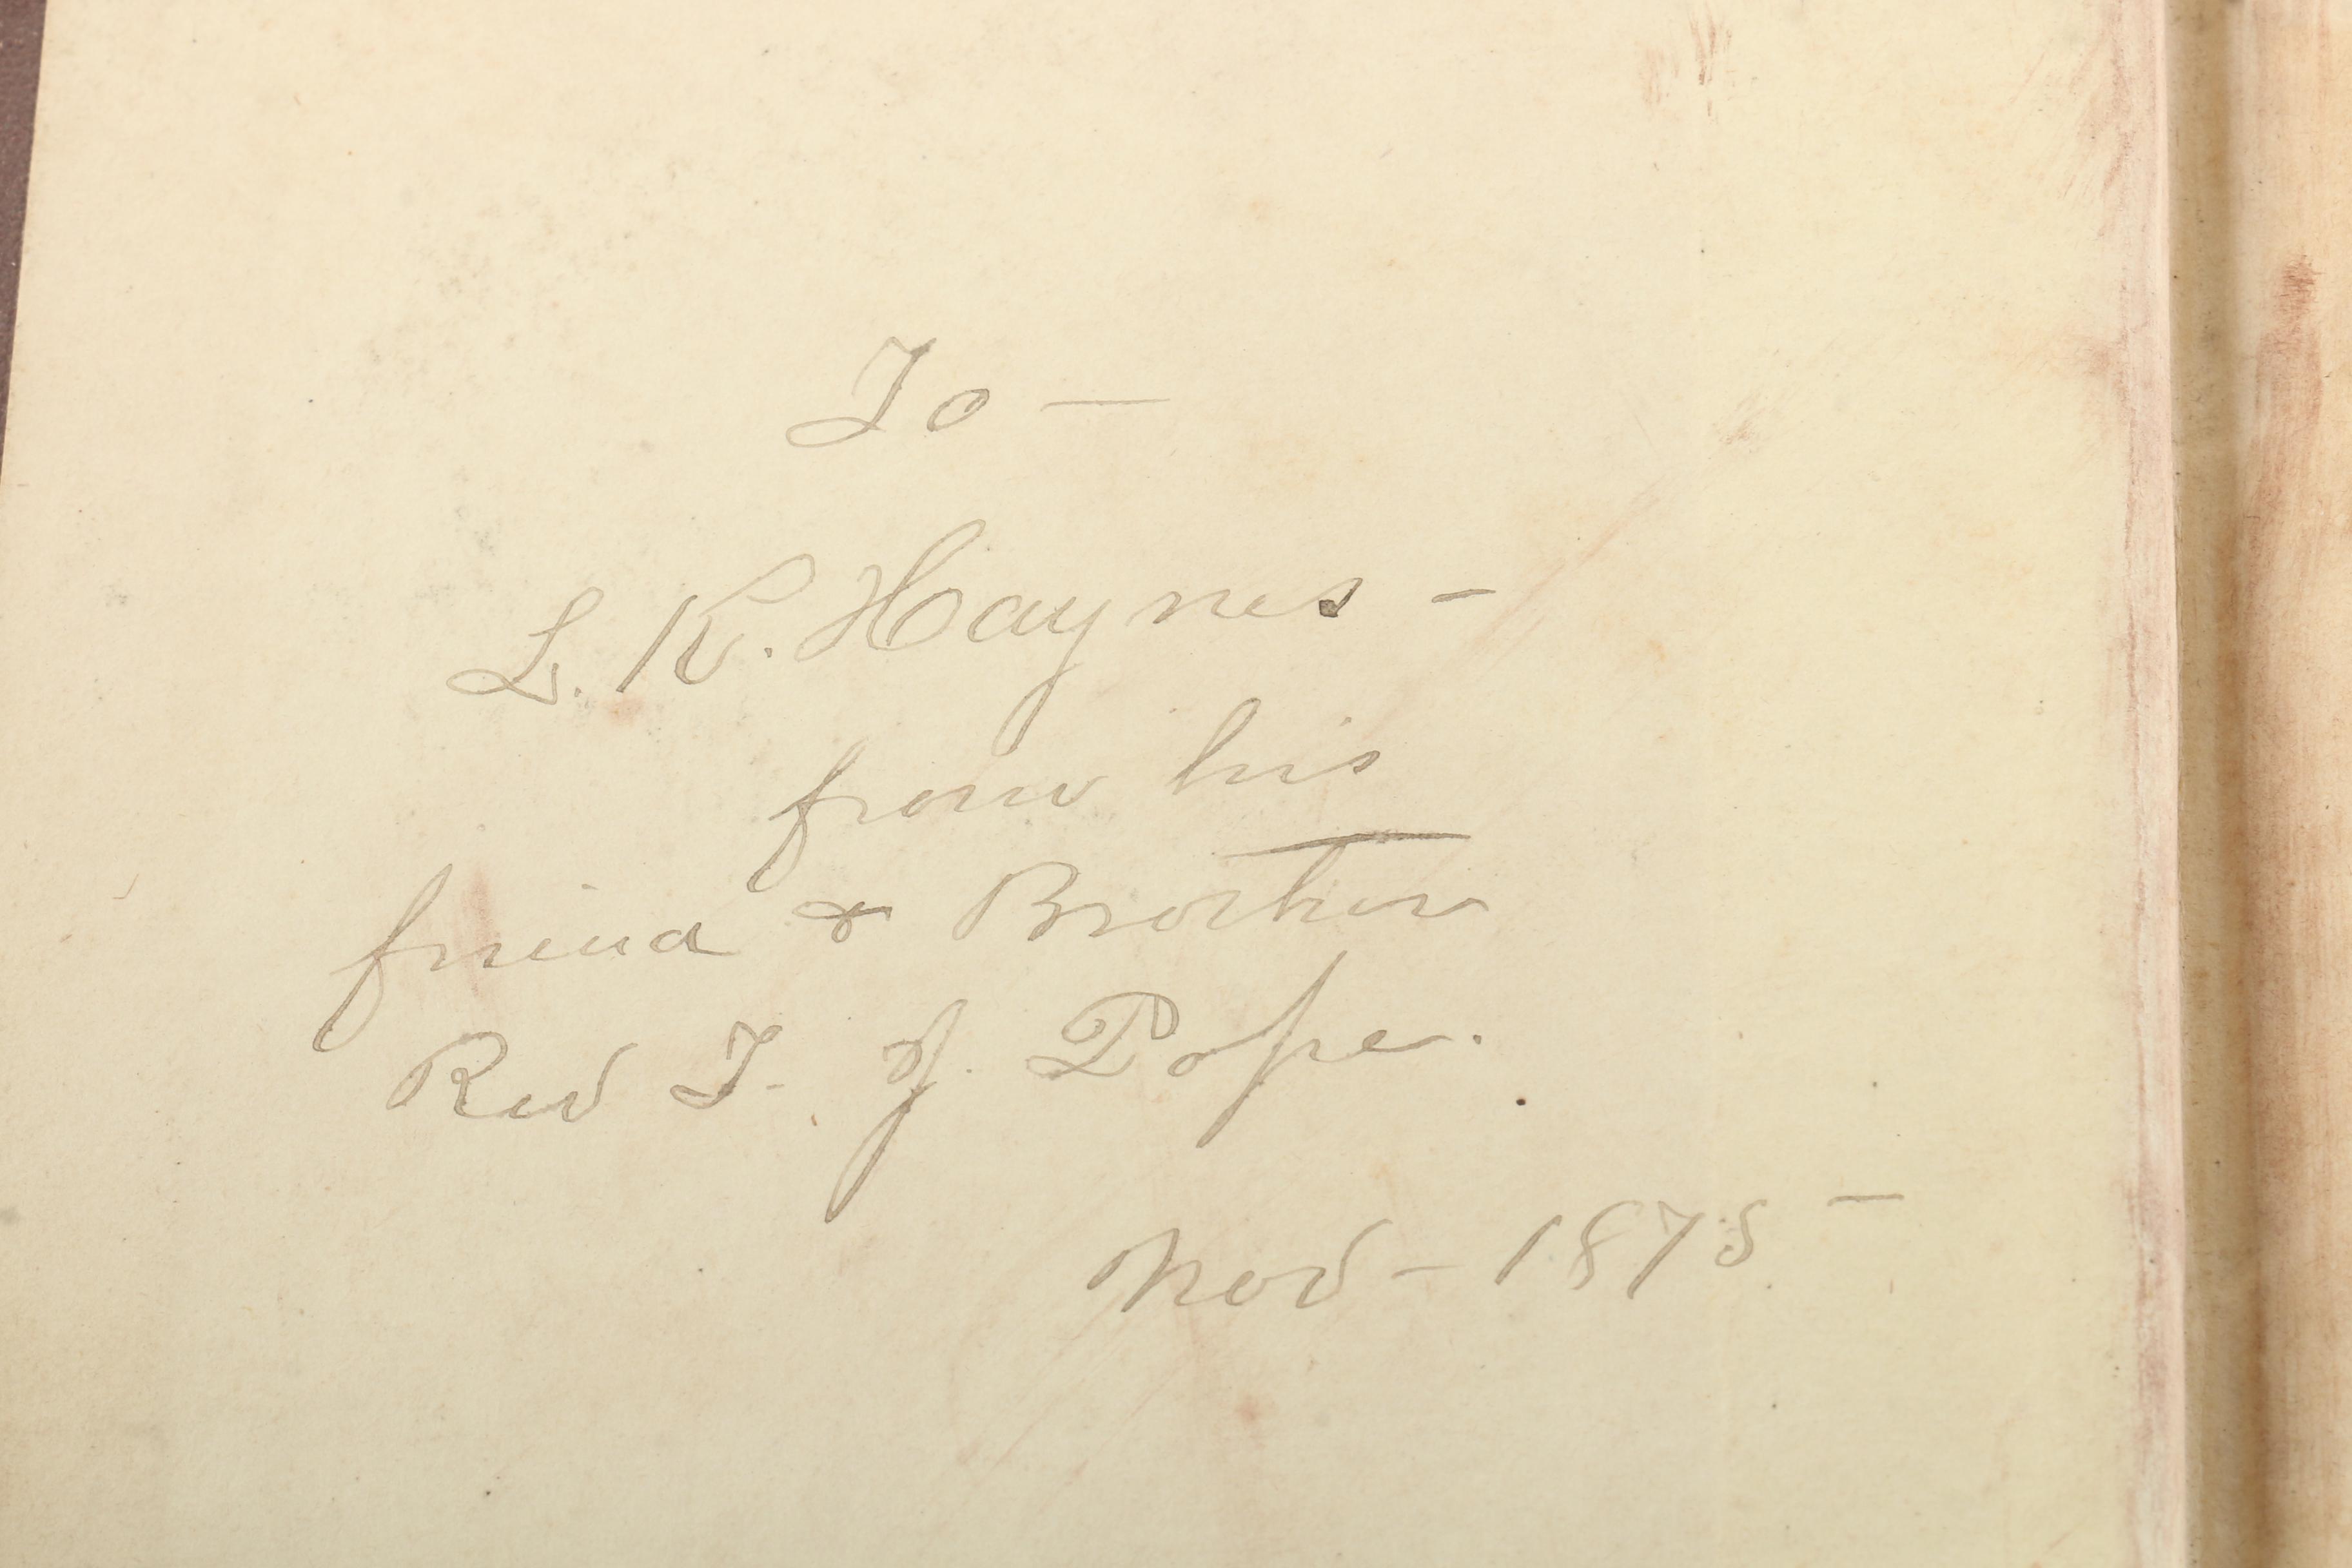 To —
L. K. Haynes -
from his
friend & Brother
Rev T. J. Pope.
Nov - 1875 -